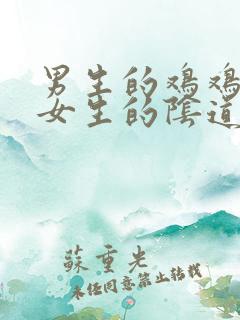 男生的鸡鸡
女生的陰道
蘇重先
未经同意禁止转载